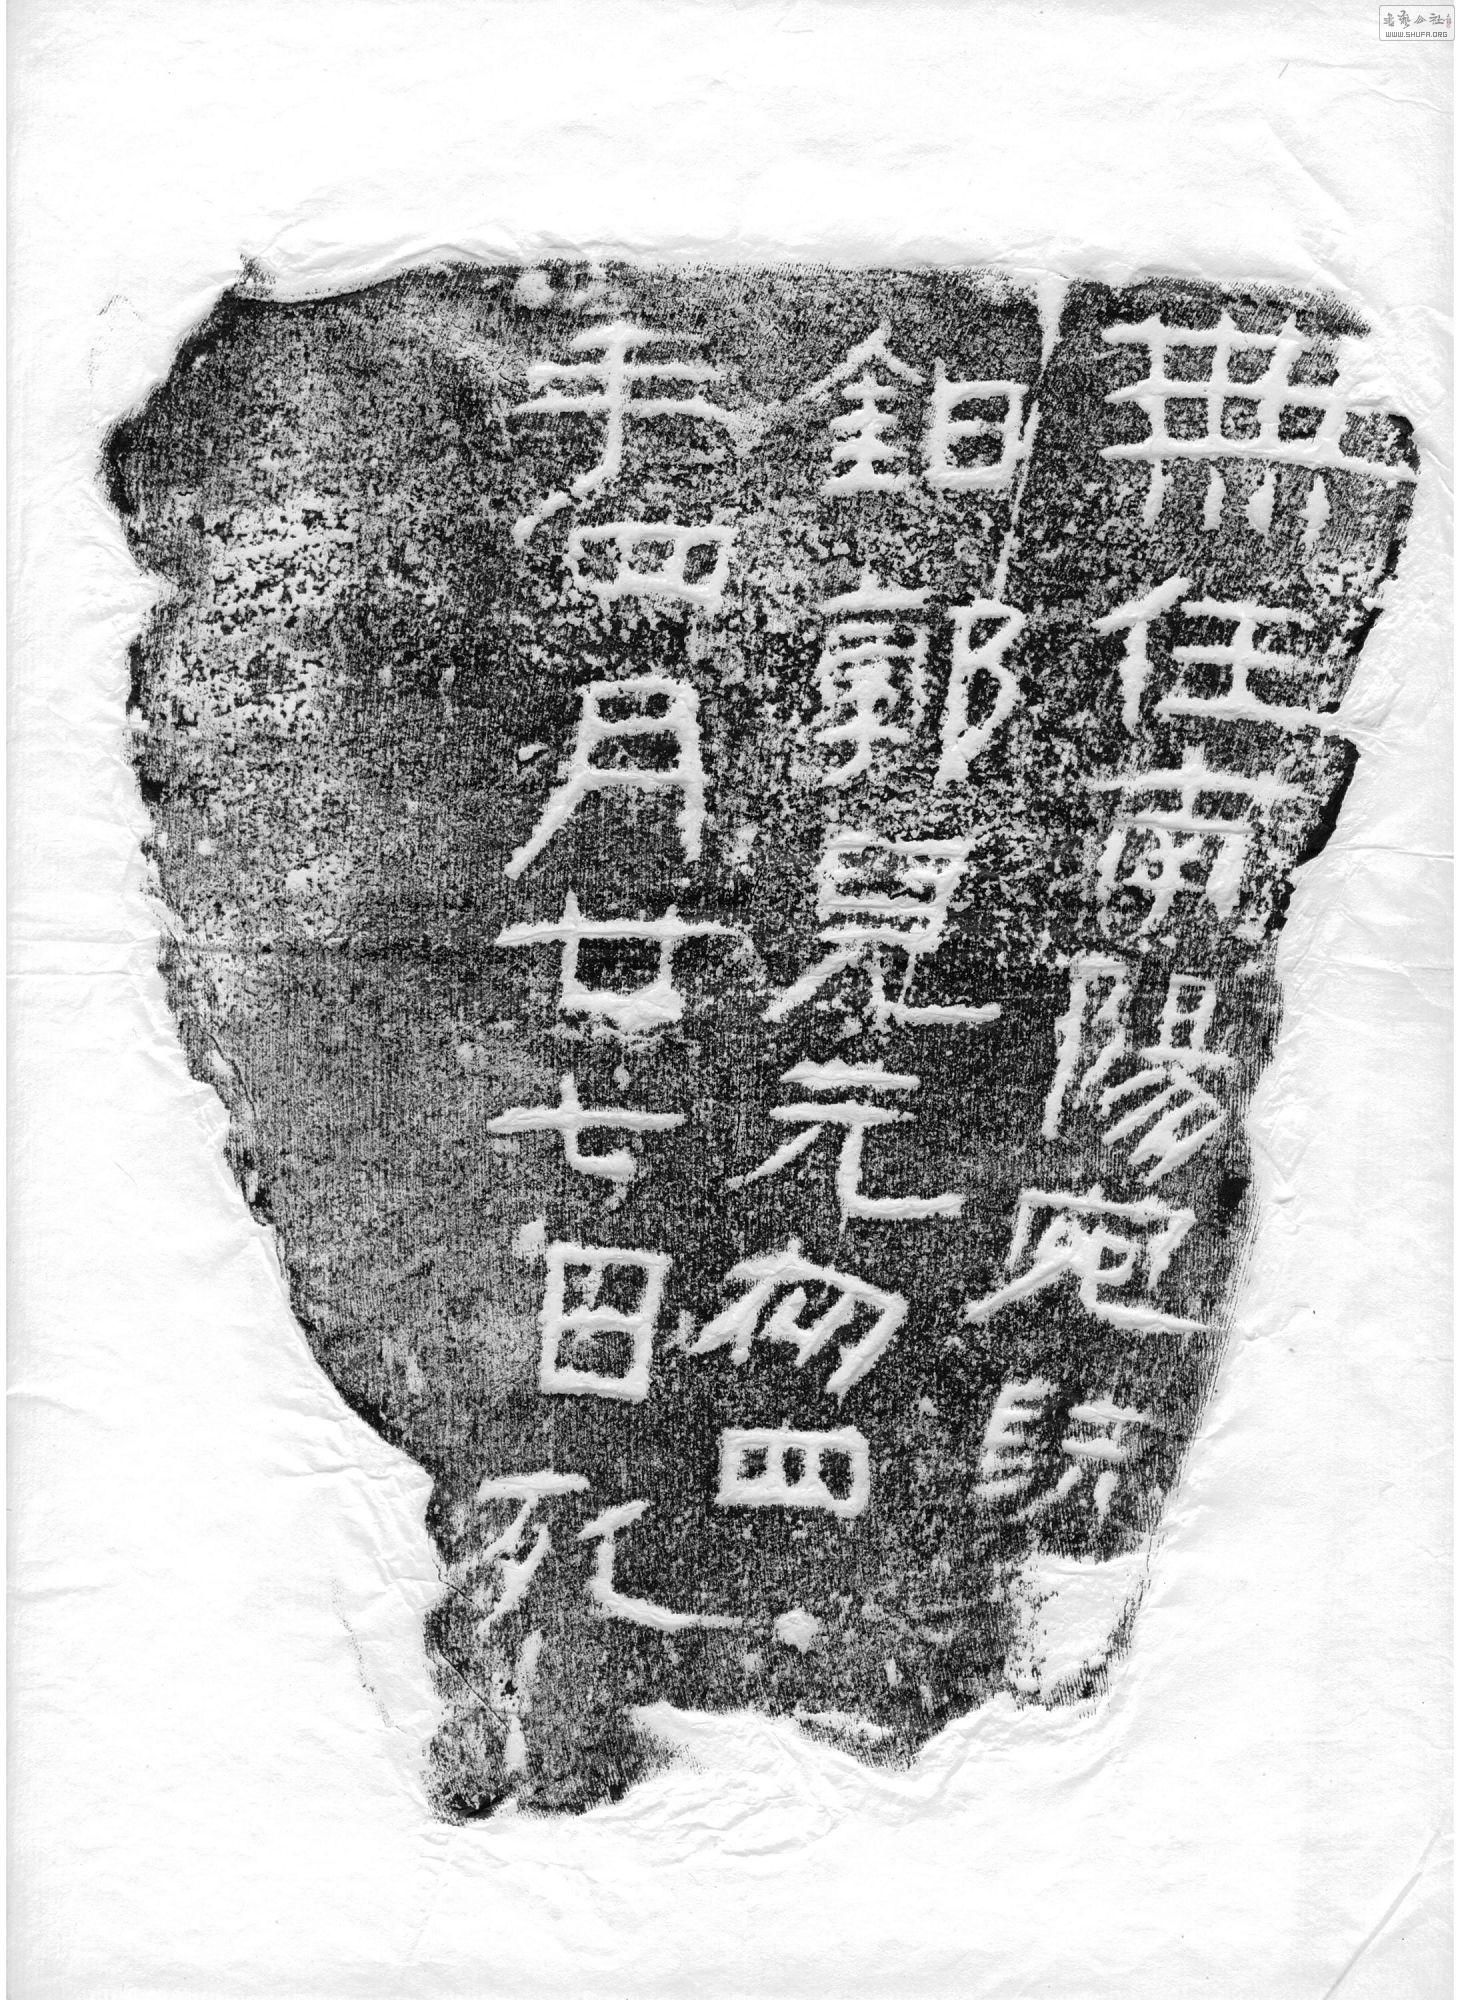 無任南陽宛髡
鉗郭見元初四
年四月廿七日死
書藝公社
WWW.SHUFA.ORG